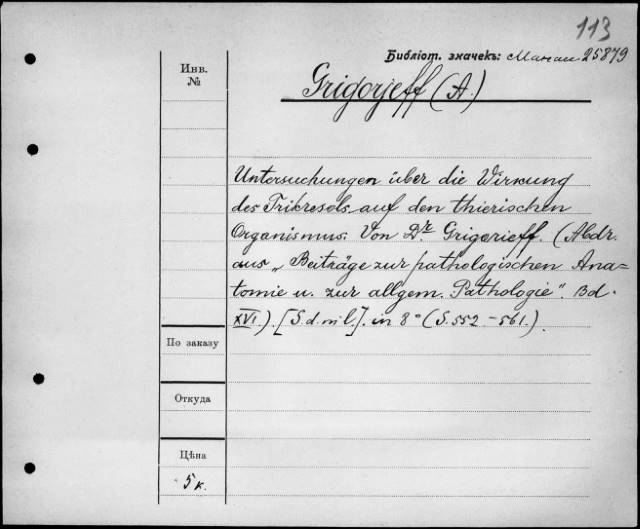 113
Библіот. значекъ: Магаз. 25879
Инв.
№
Grigorjeff (A.)
Untersuchungen über die Wirkung
des Trikresols auf den thierischen
Organismus. Von Dr. Grigorieff. (Abdr.
aus „Beiträge zur pathologischen Ana-
tomie u. zur allgem. Pathologie“. Bd.
XVI.). [S. d. ni l.]. in 8° (S. 552-561.).
По заказу
Откуда
Цѣна
5 к.